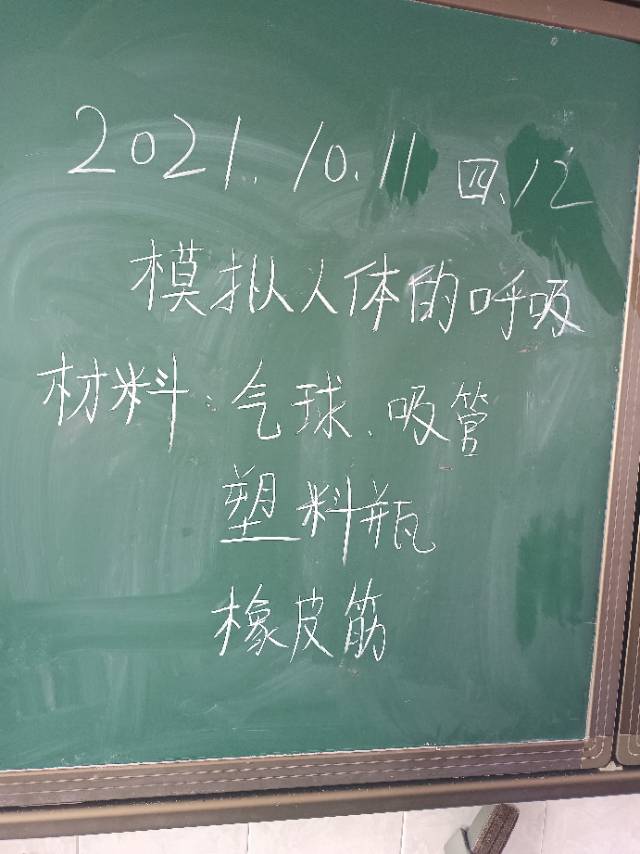 2021.10.11 四.12
模拟人体的呼吸
材料:气球、吸管
塑料瓶
橡皮筋